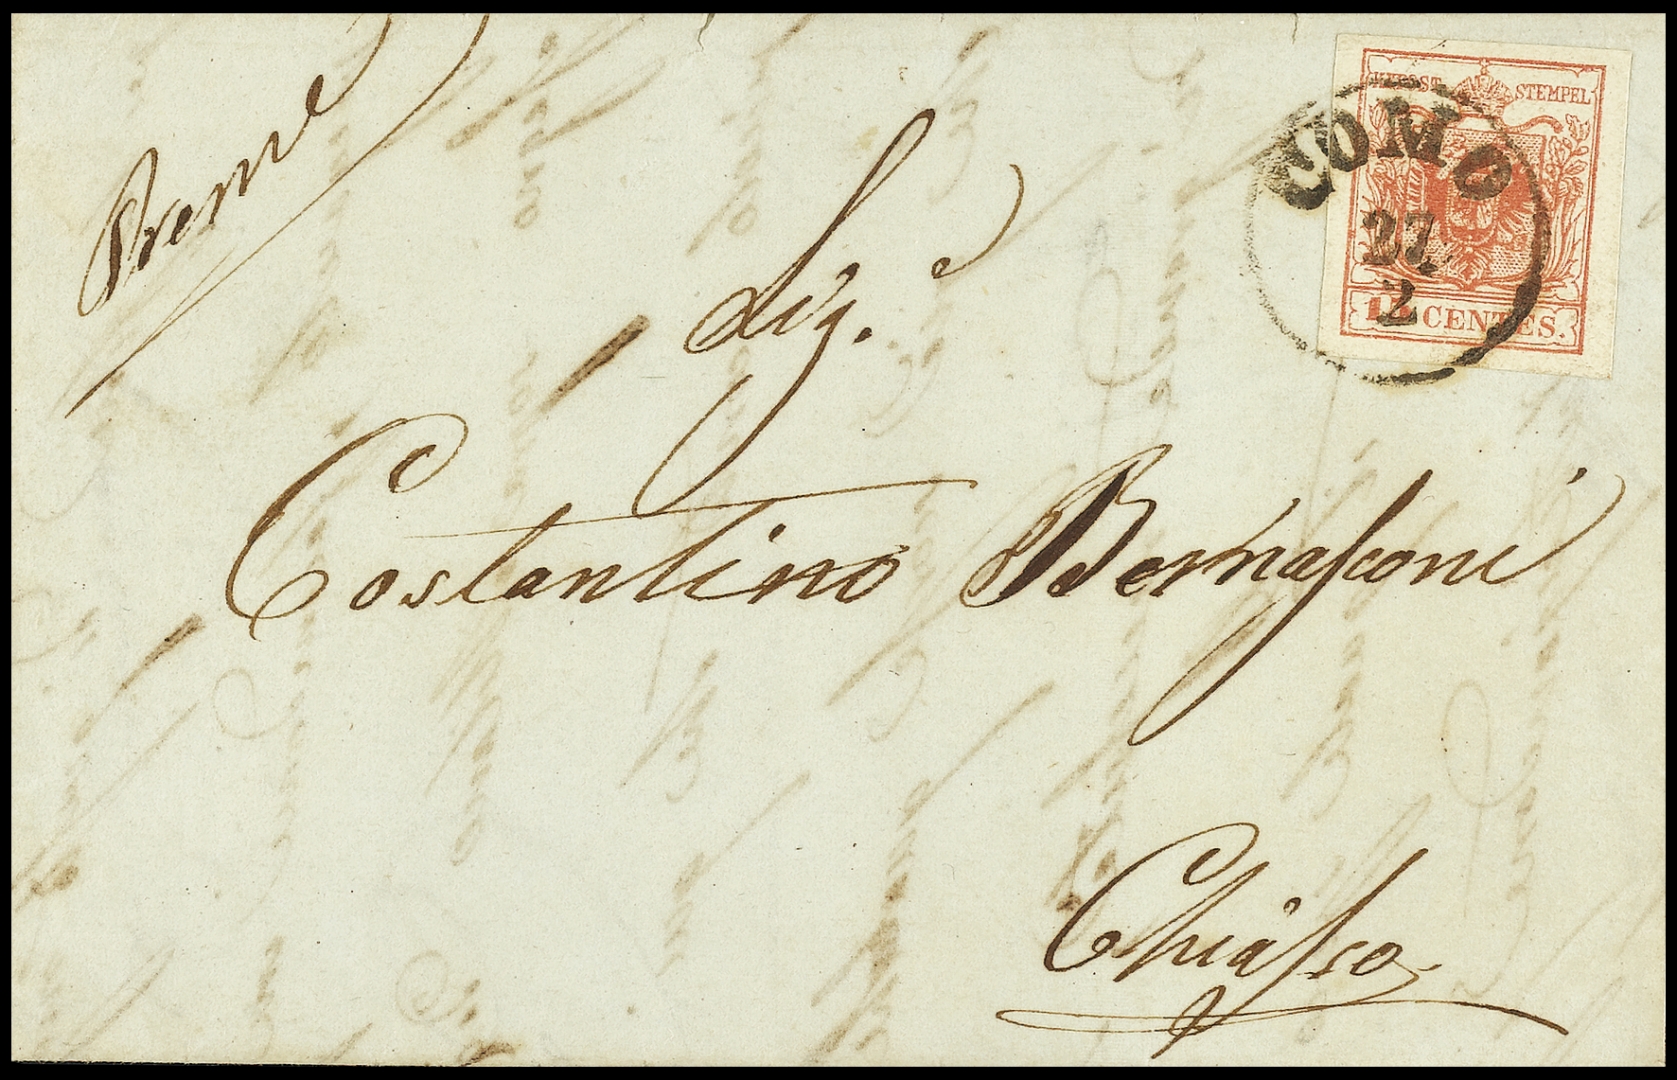 Preme
Sig.e
Costantino Bernasconi
Chiasso
STEMPEL
COMO
27
2
15 CENTES.